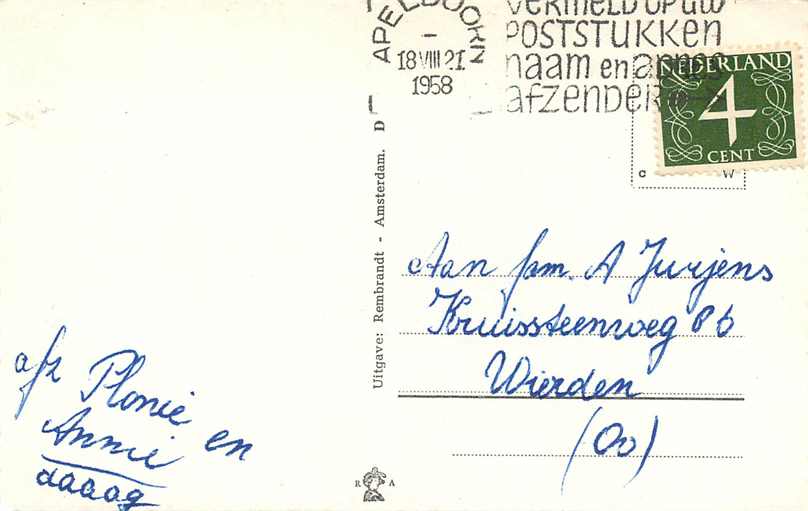 APELDOORN
18 VIII 21
1958
VERMELD OP UW
POSTSTUKKEN
naam en adres
afzender
NEDERLAND
4
CENT
c w
Uitgave: Rembrandt - Amsterdam. D
Aan fam. A Jurjens
Kruissteenweg 8b
Wierden
(Ov)
afz Plonie en
Annie
daaag
R A